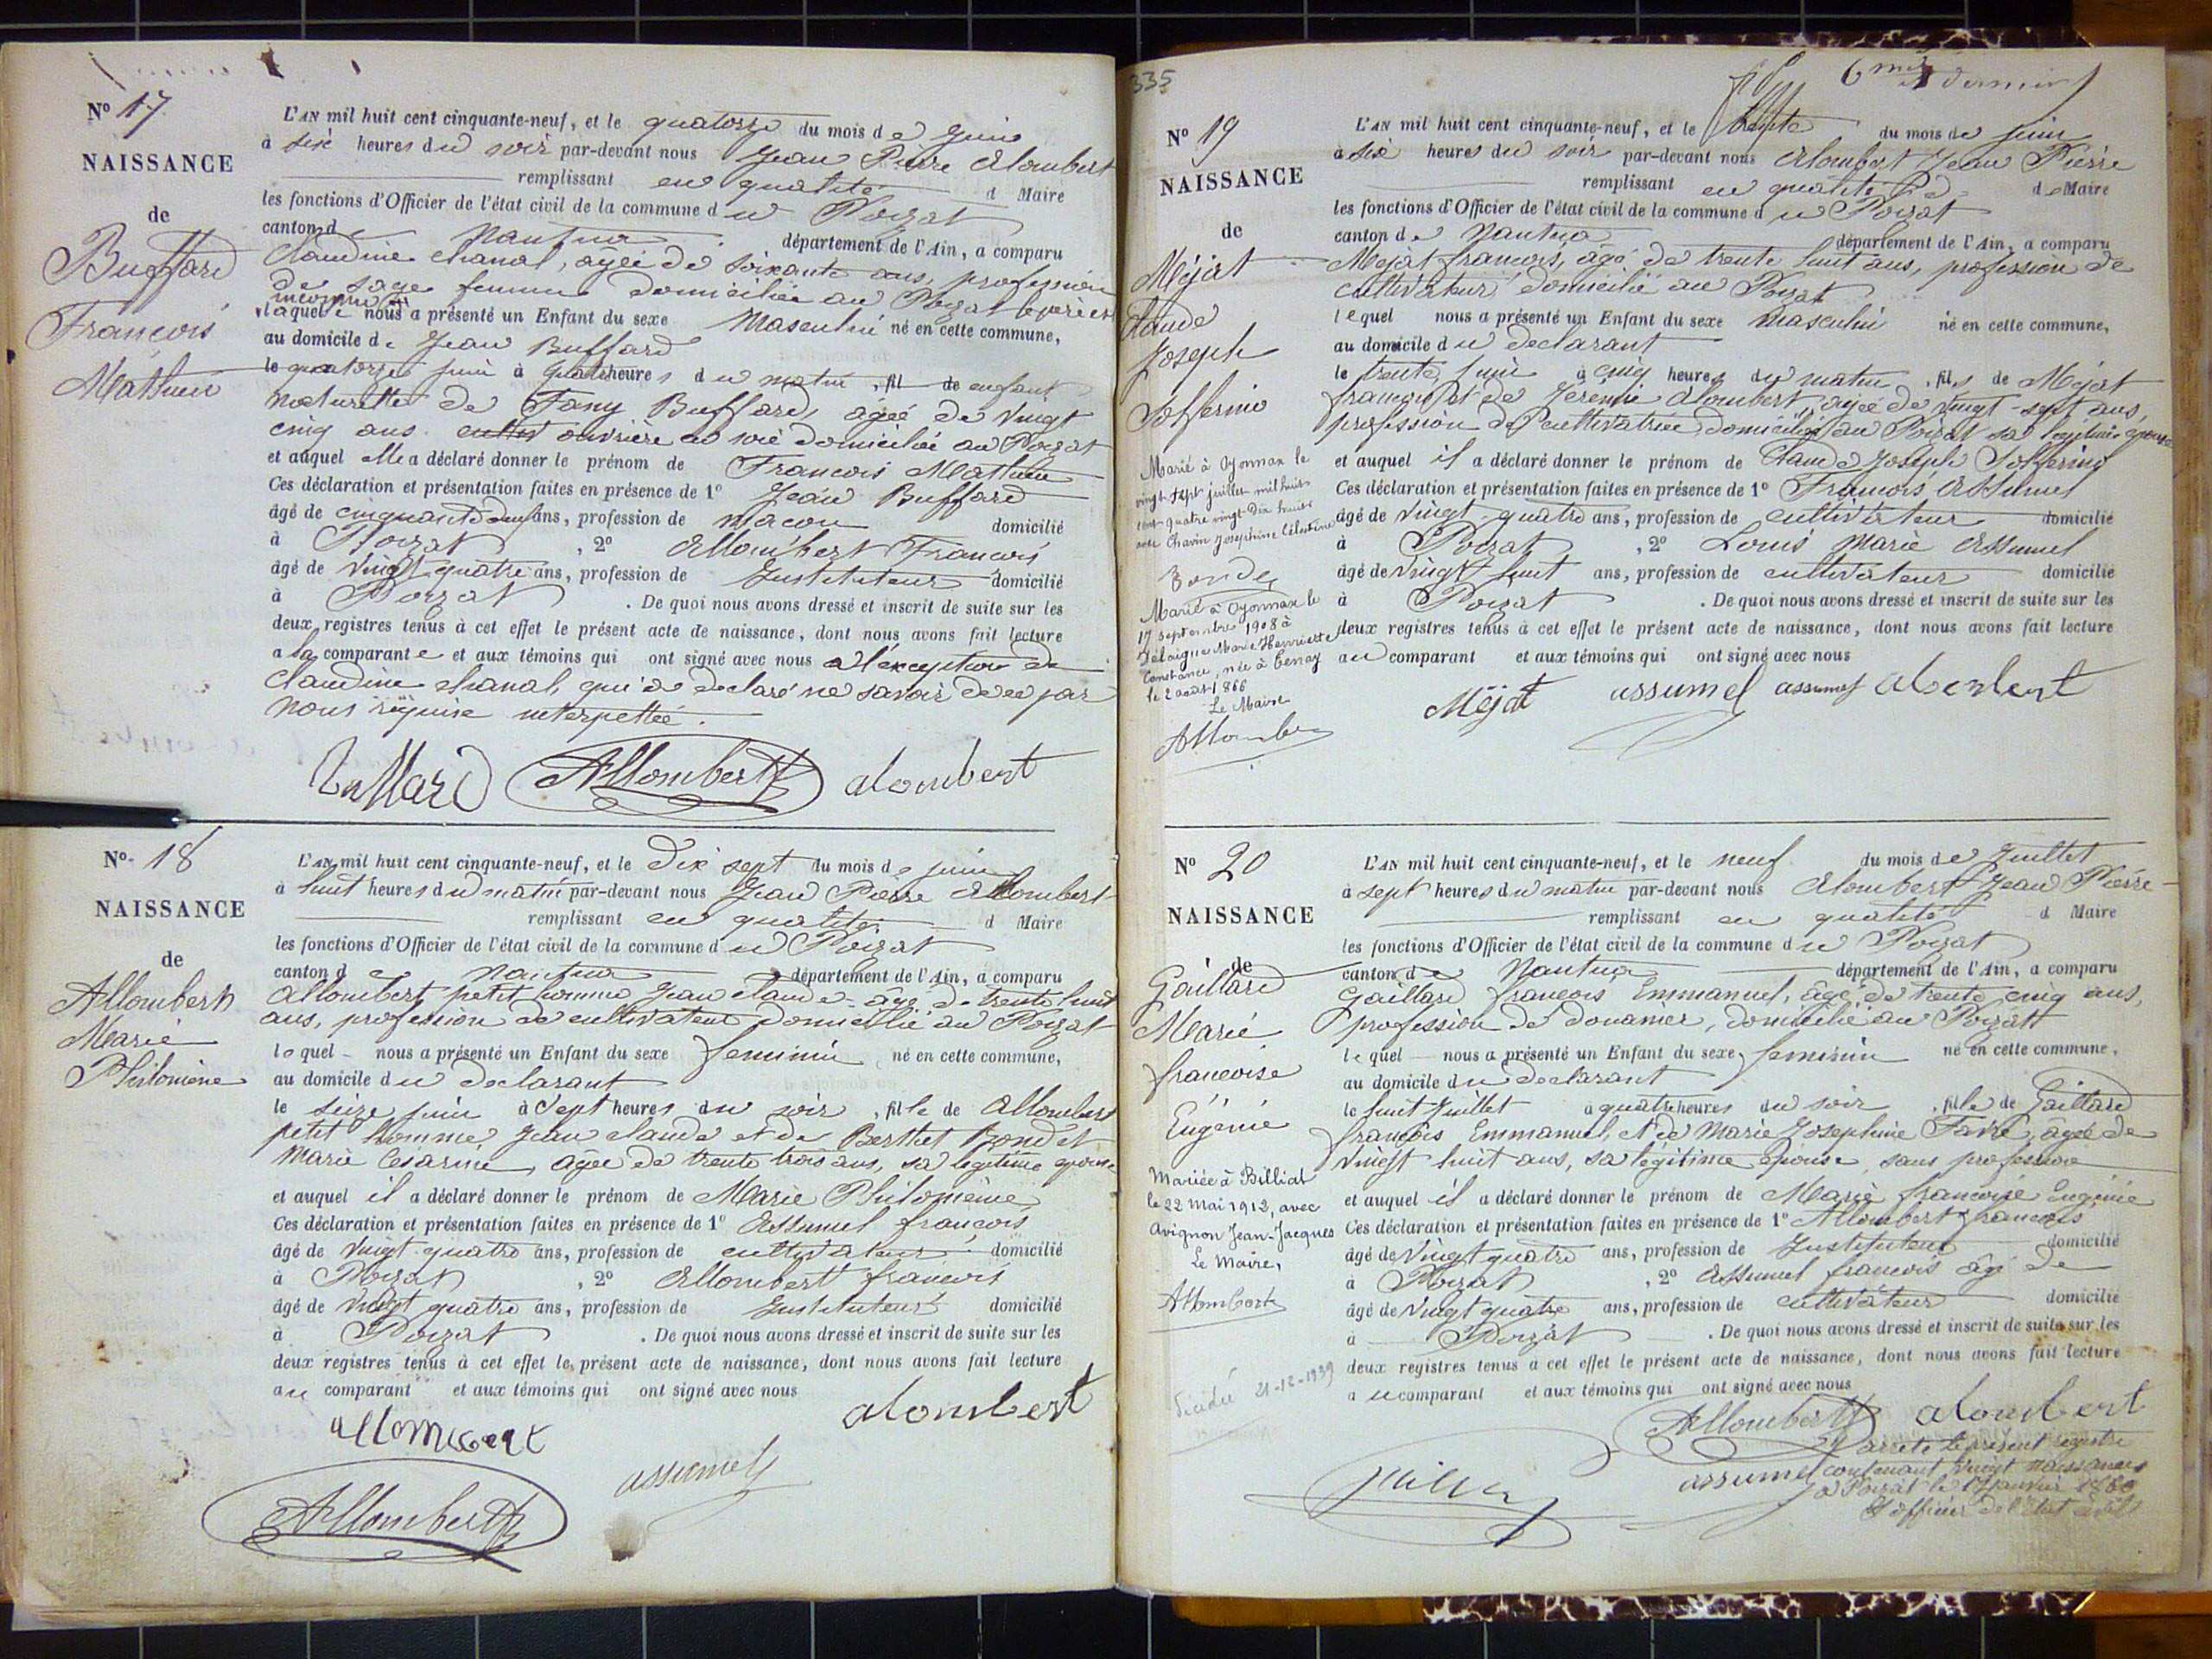 N° 17
NAISSANCE
de
Buffard
François
Mathieu
L'AN mil huit cent cinquante-neuf, et le quatorze du mois de Juin
à six heures du soir par-devant nous Jean Pierre Alombert
remplissant en qualité d Maire
les fonctions d'Officier de l'état civil de la commune du Poizat
canton de Nantua département de l'Ain, a comparu
Claudine Chanal, agée de soixante ans, profession
de sage femme domiciliée au Poizat le père est
inconnu
laquelle nous a présenté un Enfant du sexe Masculin né en cette commune,
au domicile de Jean Buffard
le quatorze juin à quatre heures du matin, fil de enfant
naturelle de Fany Buffard, âgée de vingt
cinq ans ouvrière en soie domiciliée au Poizat
et auquel elle a déclaré donner le prénom de François Mathieu
Ces déclaration et présentation faites en présence de 1° Jean Buffard
âgé de ans, profession de maçon domicilié
à Poizat, 2° Allombert François
âgé de vingt quatre ans, profession de Instituteur domicilié
à Poizat. De quoi nous avons dressé et inscrit de suite sur les
deux registres tenus à cet effet le présent acte de naissance, dont nous avons fait lecture
a la comparante et aux témoins qui ont signé avec nous a l'exception de
Claudine Chanal, qui a declaré ne savoir de ce par
nous requise interpellée.
Buffard Allombert alombert
N° 18
NAISSANCE
de
Allombert
Marie
Philomène
L'AN mil huit cent cinquante-neuf, et le Dix sept du mois de juin
à huit heures du matin par-devant nous Jean Pierre Alombert
remplissant en qualité d Maire
les fonctions d'Officier de l'état civil de la commune du Poizat
canton de Nantua département de l'Ain, a comparu
Allombert petit homme Jean Claude âgé de trente huit
ans, profession de cultivateur domicilié au Poizat
lequel nous a présenté un Enfant du sexe feminin né en cette commune,
au domicile du declarant
le seize juin à sept heures du soir, fille de Allombert
petit homme Jean Claude et de Berthet Bondet
Marie Cesarine, agée de trente trois ans, sa légitime epouse
et auquel il a déclaré donner le prénom de Marie Philomène
Ces déclaration et présentation faites en présence de 1° Assumel françois
âgé de vingt quatre ans, profession de cultivateur domicilié
à Poizat, 2° Allombert françois
âgé de vingt quatre ans, profession de Instituteur domicilié
à Poizat. De quoi nous avons dressé et inscrit de suite sur les
deux registres tenus à cet effet le présent acte de naissance, dont nous avons fait lecture
au comparant et aux témoins qui ont signé avec nous
allombert alombert
Allombert assumel
335
N° 19
NAISSANCE
de
Méjat
Claude
Joseph
Solferino
Marié à Oyonnax le
vingt sept juillet mil huit
cent quatre vingt dix huit
avec Chavin Joséphine Célestine
Marié à Oyonnax le
19 septembre 1908 à
Delaigue Marie Henriette
Constance, née à Tenay
le 2 août 1866
Le Maire
Allombert
6me et dernier
L'AN mil huit cent cinquante-neuf, et le trente du mois de juin
à six heures du soir par-devant nous Alombert Jean Pierre
remplissant en qualité de Maire
les fonctions d'Officier de l'état civil de la commune du Poizat
canton de Nantua département de l'Ain, a comparu
Mejat francois, âgé de trente huit ans, profession de
cultivateur domicilié au Poizat
lequel nous a présenté un Enfant du sexe masculin né en cette commune,
au domicile du declarant
le trente juin à cinq heures du matin, fils de Méjat
françois et de Jérémie Alombert, agée de vingt-sept ans,
profession de cultivatrice, domiciliée au Poizat sa légitime epouse
et auquel il a déclaré donner le prénom de Claude Joseph Solferino
Ces déclaration et présentation faites en présence de 1° François Assumel
âgé de vingt-quatre ans, profession de cultivateur domicilié
à Poizat, 2° Louis Marie Assumel
âgé de vingt huit ans, profession de cultivateur domicilié
à Poizat. De quoi nous avons dressé et inscrit de suite sur les
deux registres tenus à cet effet le présent acte de naissance, dont nous avons fait lecture
au comparant et aux témoins qui ont signé avec nous
Méjat assumel assumel alombert
N° 20
NAISSANCE
de
Gaillard
Marie
françoise
Eugénie
Mariée à Billiat
le 22 mai 1912, avec
Avignon Jean-Jacques
Le Maire,
Allombert
Décédée 21-12-1939
L'AN mil huit cent cinquante-neuf, et le neuf du mois de Juillet
à sept heures du matin par-devant nous Alombert Jean Pierre
remplissant en qualité d Maire
les fonctions d'Officier de l'état civil de la commune du Poizat
canton de Nantua département de l'Ain, a comparu
Gaillard françois Emmanuel, âgé de trente cinq ans,
profession de douanier, domicilié au Poizat
lequel nous a présenté un Enfant du sexe feminin né en cette commune,
au domicile du declarant
le huit Juillet à quatre heures du soir, fille de Gaillard
françois Emmanuel, et de Marie Josephine Favre, âgée de
vingt huit ans, sa légitime epouse, sans profession
et auquel il a déclaré donner le prénom de Marie françoise Eugénie
Ces déclaration et présentation faites en présence de 1° Allombert francois
âgé de vingt quatre ans, profession de Instituteur domicilié
à Poizat, 2° Assumel francois âgé de
âgé de vingt quatre ans, profession de cultivateur domicilié
à Poizat. De quoi nous avons dressé et inscrit de suite sur les
deux registres tenus à cet effet le présent acte de naissance, dont nous avons fait lecture
au comparant et aux témoins qui ont signé avec nous
Allombert alombert
assumel
arrete le présent registre
contenant vingt naissances
a Poizat le 1 Janvier 1860
L'officier de l'état civil